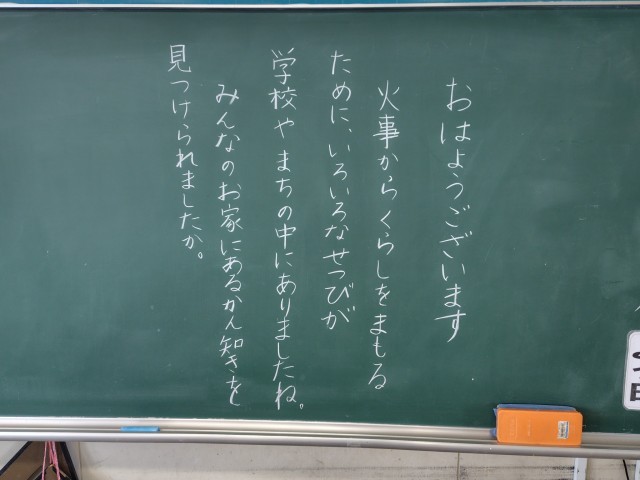 おはようございます
火事からくらしをまもる
ために、いろいろなせつびが
学校やまちの中にありましたね。
みんなのお家にあるかん知きを
見つけられましたか。